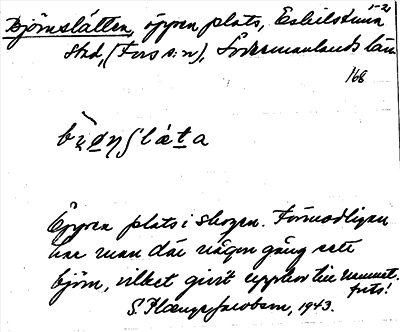 Björnslätten, öppen plats, Eskilstuna
stad, (Fors s:n), Södermanlands län
168
Öppen plats i skogen. Förmodligen
har man där någon gång sett
björn, vilket givit upphov till namnet.
S. Flænge Jacobsen, 1943.